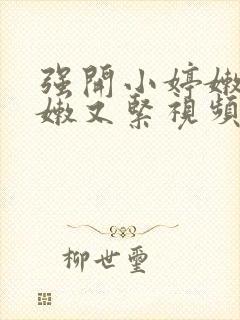 强開小婷嫩
嫩又緊視頻
柳世璽